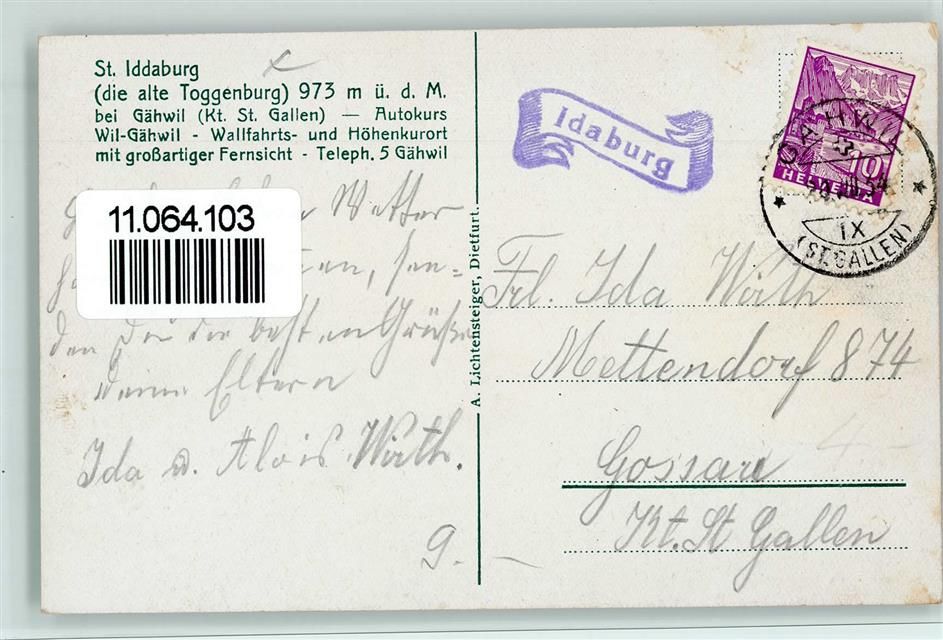 St. Iddaburg
(die alte Toggenburg) 973 m ü. d. M.
bei Gähwil (Kt. St. Gallen) — Autokurs
Wil-Gähwil - Wallfahrts- und Höhenkurort
mit großartiger Fernsicht - Teleph. 5 Gähwil
Wetter
11.064.103
sen-
den Dir die besten Grüße
Deine Eltern
Ida u. Alois Wirth.
9.
A. Lichtensteiger, Dietfurt.
Idaburg
10
HELVETIA
GÄHWIL
IX
(ST. GALLEN)
Frl. Ida Wirth
Mettendorf 874
Gossau
Kt. St Gallen